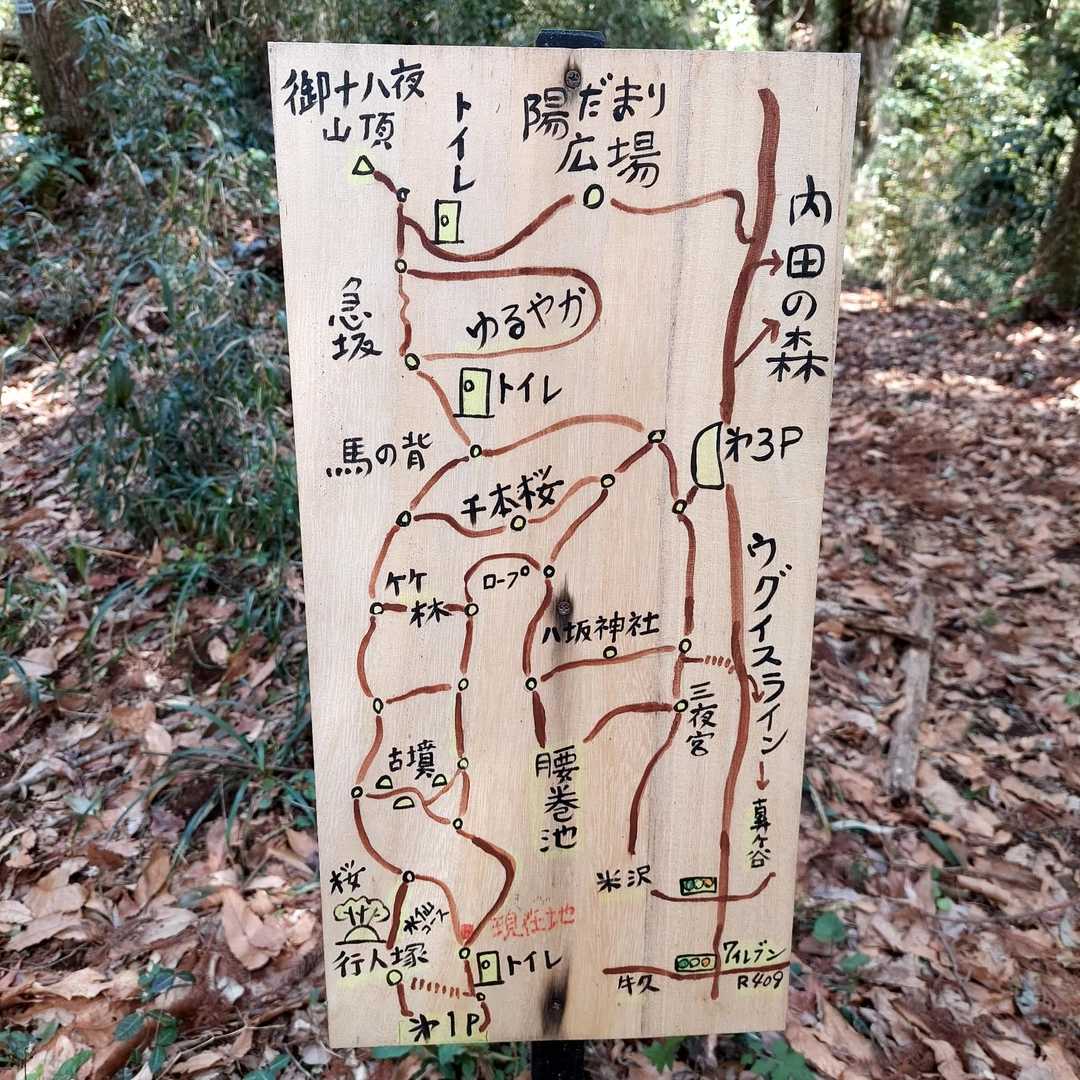 御十八夜
山頂
トイレ
陽だまり
広場
内田の森
急坂
ゆるやか
トイレ
馬の背
第3P
千本桜
竹
林
ロープ
八坂神社
ウグイスライン
三夜宮
古墳
腰巻池
真ヶ谷
米沢
桜
現在地
行人塚
トイレ
牛久
R409
第1P